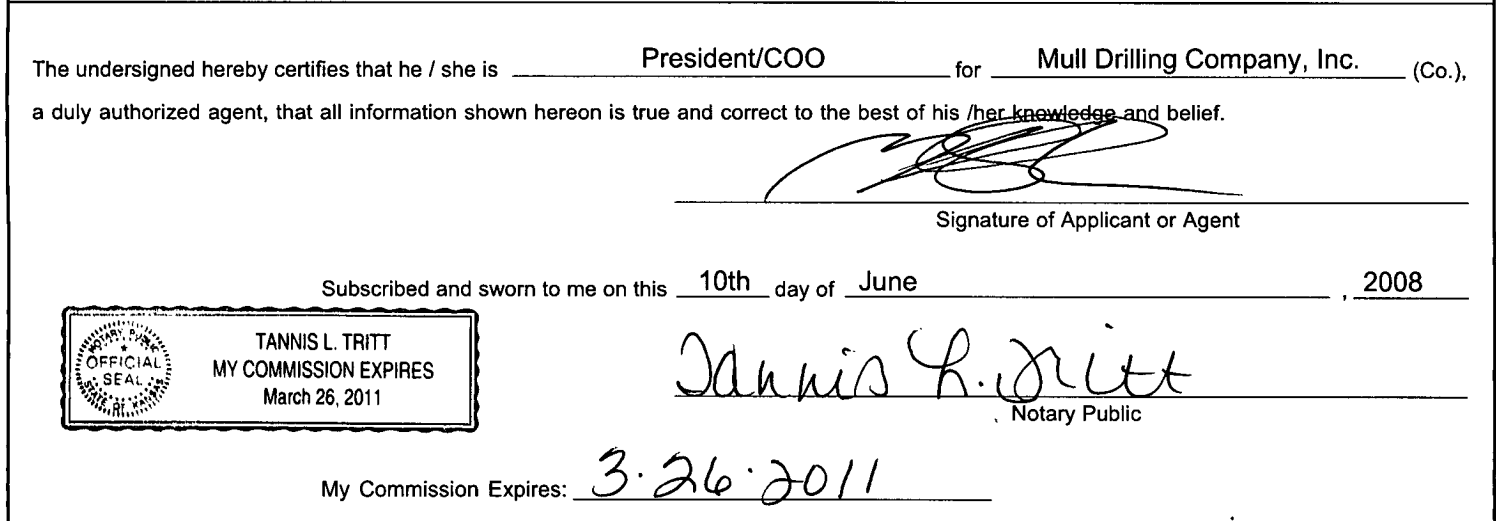 The undersigned hereby certifies that he / she is President/COO for Mull Drilling Company, Inc. (Co.),
a duly authorized agent, that all information shown hereon is true and correct to the best of his /her knowledge and belief.
Signature of Applicant or Agent
Subscribed and sworn to me on this 10th day of June , 2008
NOTARY PUBLIC
OFFICIAL
SEAL
STATE OF KANSAS
TANNIS L. TRITT
MY COMMISSION EXPIRES
March 26, 2011
Tannis L. Tritt
Notary Public
My Commission Expires: 3.26.2011